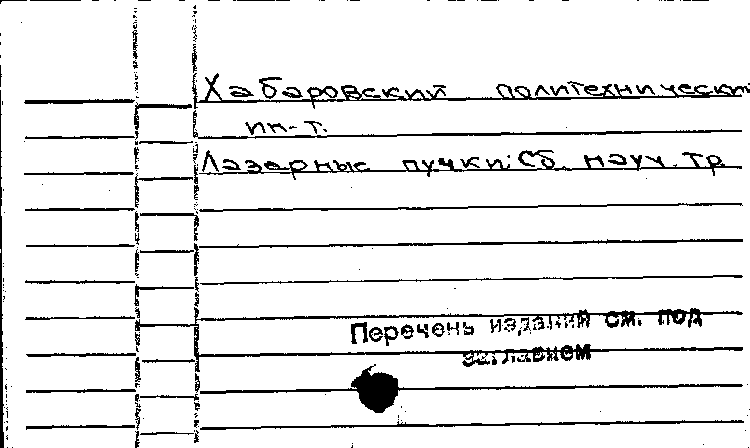 Хабаровский политехнический
ин-т.
Лазерные пучки: Сб. науч. тр.
Перечень изданий см. под
заглавием